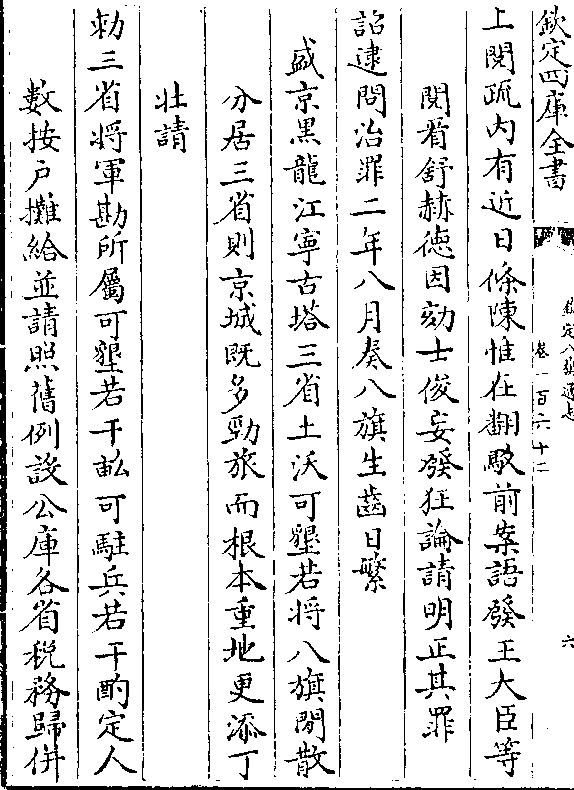 欽定四庫全書
欽定八旗通志
卷一百六十二
六
上閱疏内有近日條陳惟在翻駁前案語發王大臣等
閱看舒赫德因劾士俊妄發狂論請明正其罪
詔逮問治罪二年八月奏八旗生齒日繁
盛京黑龍江寧古塔三省土沃可墾若將八旗閒散
分居三省則京城既多勁旅而根本重地更添丁
壯請
勅三省將軍勘所屬可墾若干畝可駐兵若干酌定人
數按戸攤給並請照舊例設公庫各省稅務歸併